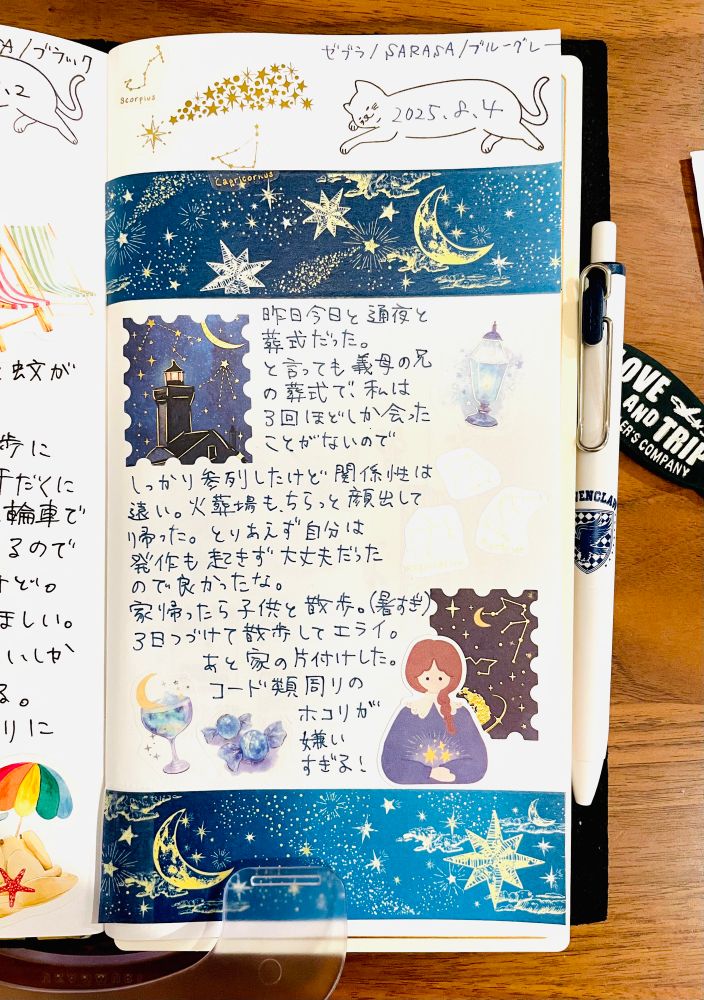 SA/ブラック
.2
と蚊が
歩に
汗だくに
輪車で
るので
けど。
ほしい。
いしか
る。
りに
ゼブラ/SARASA/ブルーグレー
scorpius
2025.8.4
Capricornus
昨日今日と通夜と
葬式だった。
と言っても義母の兄
の葬式で、私は
3回ほどしか会った
ことがないので
しっかり参列したけど関係性は
遠い。火葬場も、ちらっと顔出して
帰った。とりあえず自分は
発作も起きず大丈夫だった
ので良かったな。
家帰ったら子供と散歩。(暑すぎ)
3日つづけて散歩してエライ。
あと家の片付けした。
コード類周りの
ホコリが
嫌い
すぎる!
LOVE
AND TRIP
LER'S COMPANY